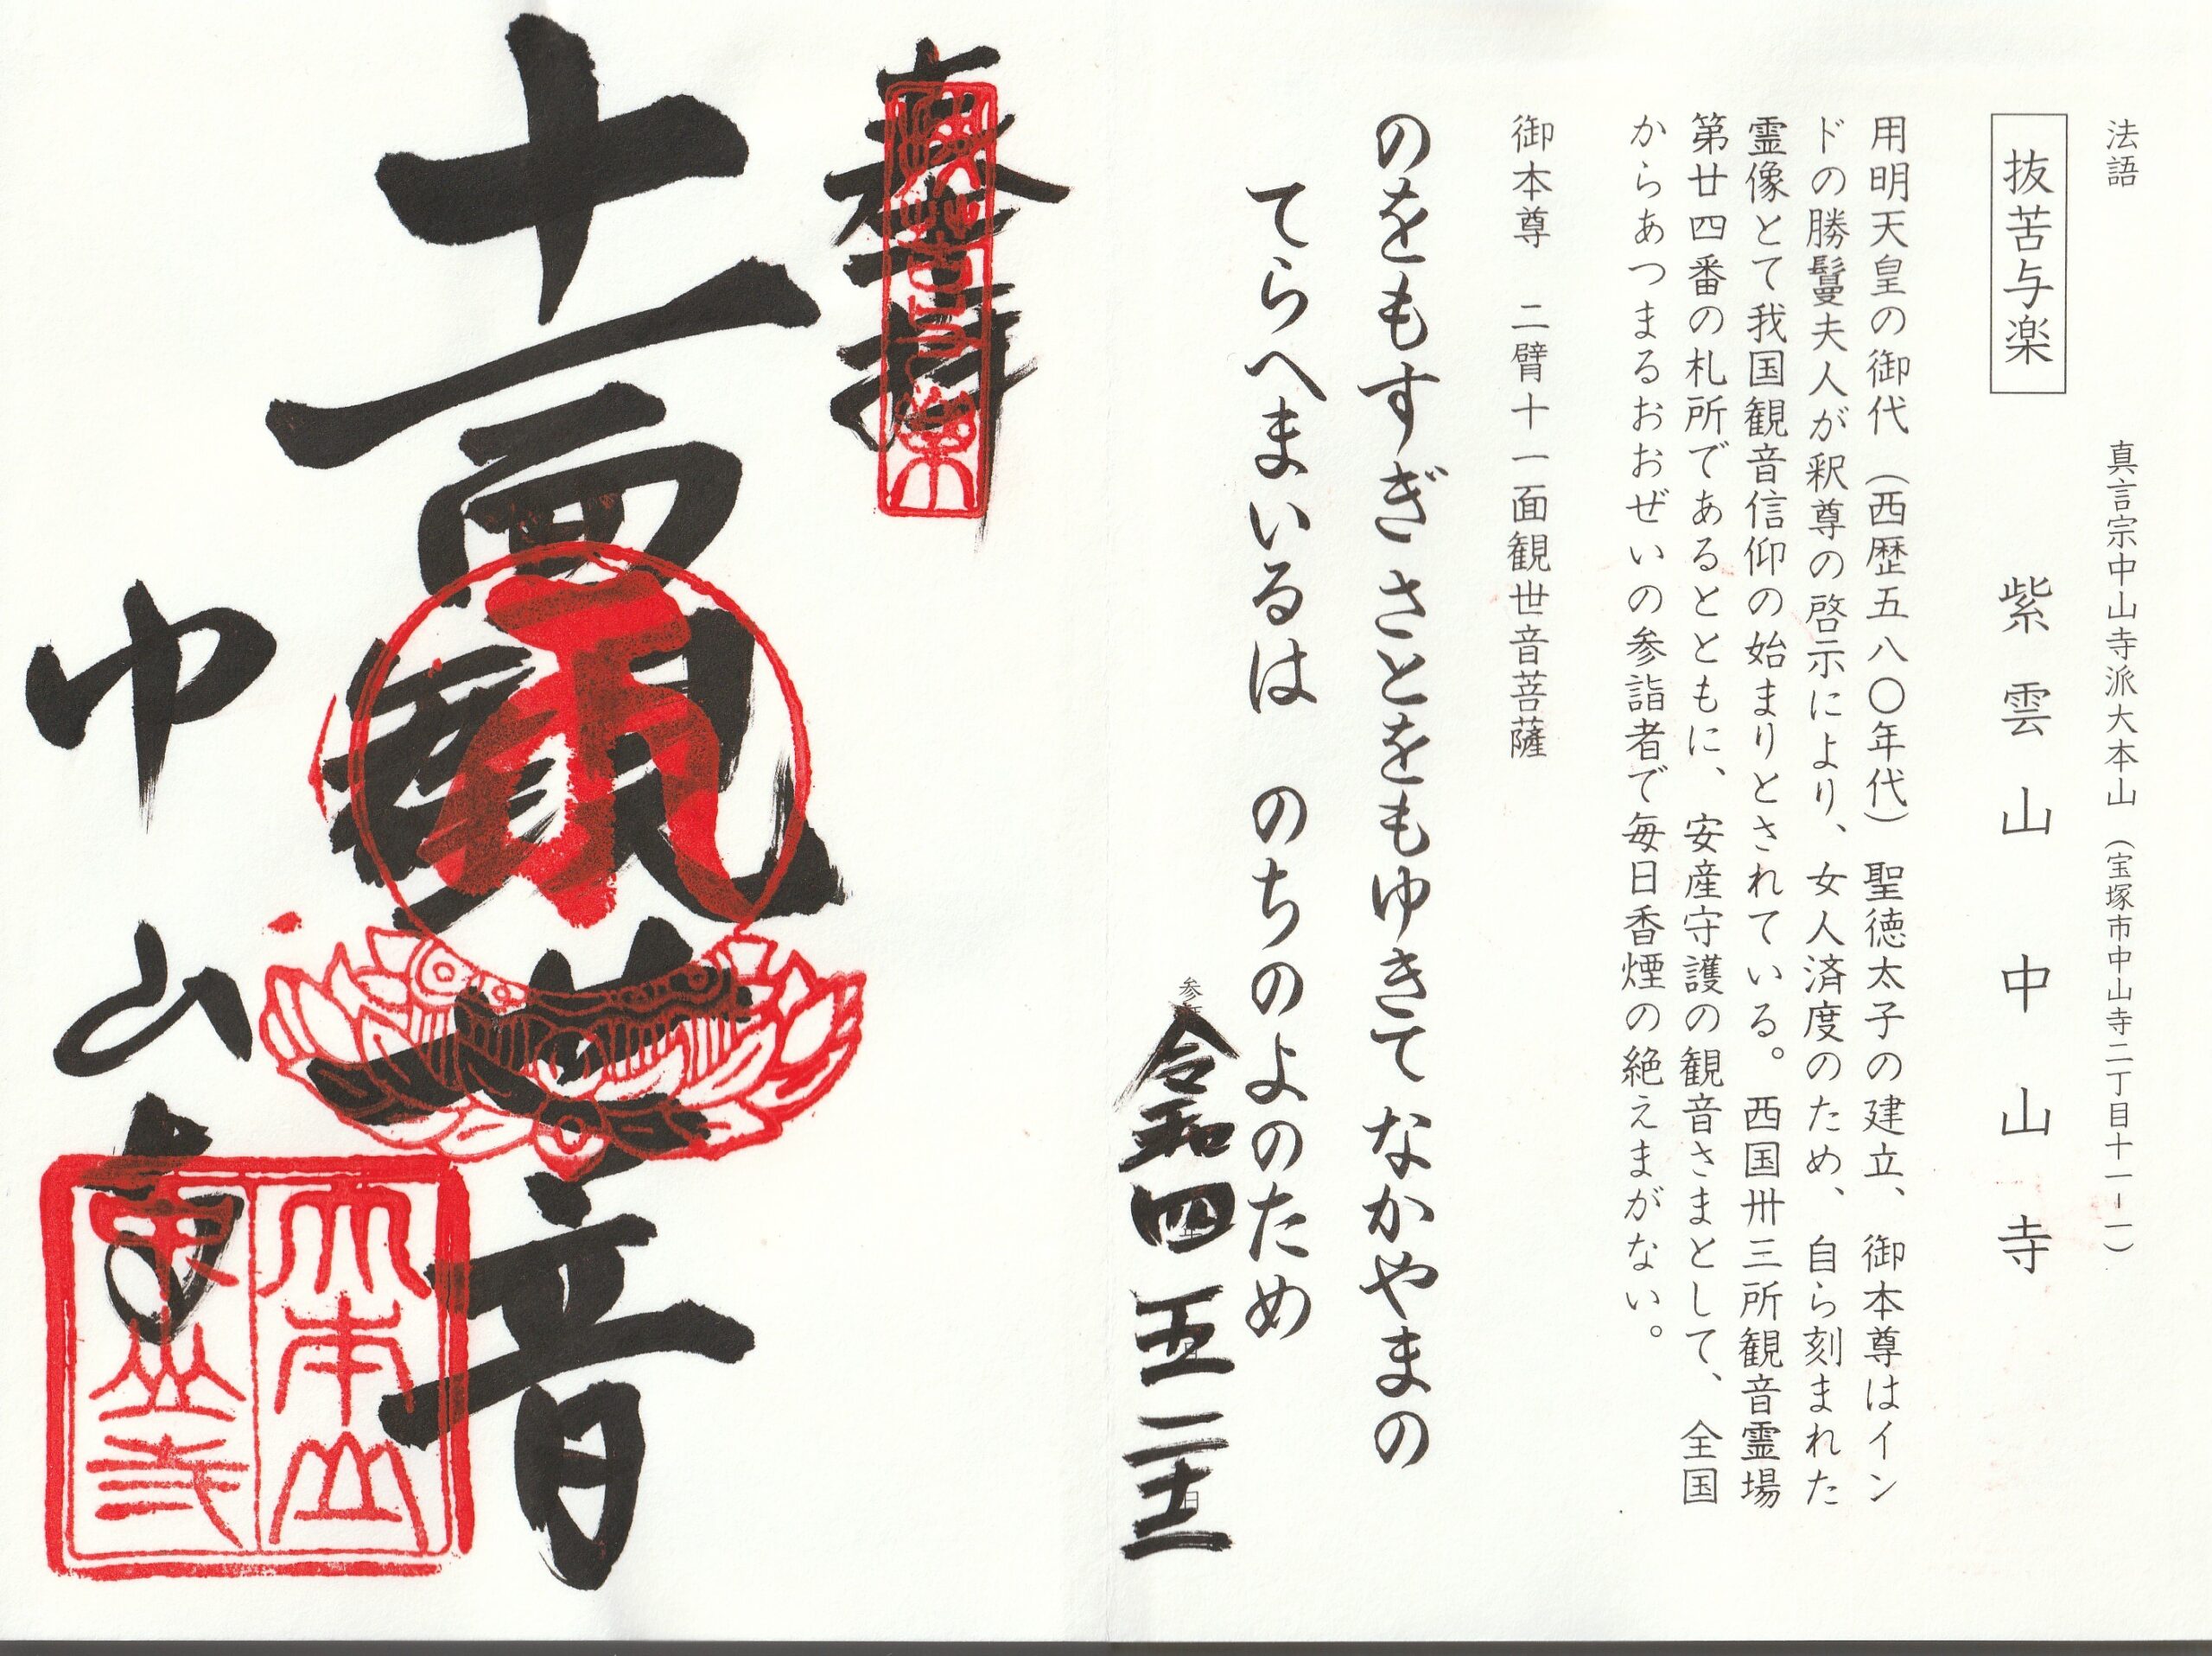 法語 真言宗中山寺派大本山（宝塚市中山寺二丁目十一－一）
抜苦与楽 紫雲山 中山寺
用明天皇の御代（西歴五八〇年代）聖徳太子の建立、御本尊はイン
ドの勝鬘夫人が釈尊の啓示により、女人済度のため、自ら刻まれた
霊像とて我国観音信仰の始まりとされている。西国卅三所観音霊場
第廿四番の札所であるとともに、安産守護の観音さまとして、全国
からあつまるおおぜいの参詣者で毎日香煙の絶えまがない。
御本尊 二臂十一面観世音菩薩
のをもすぎ さとをもゆきて なかやまの
てらへまいるは のちのよのため
令和四 五 二十二
奉拝
抜苦与楽
十一面観世音
中山寺
大本山
中山寺